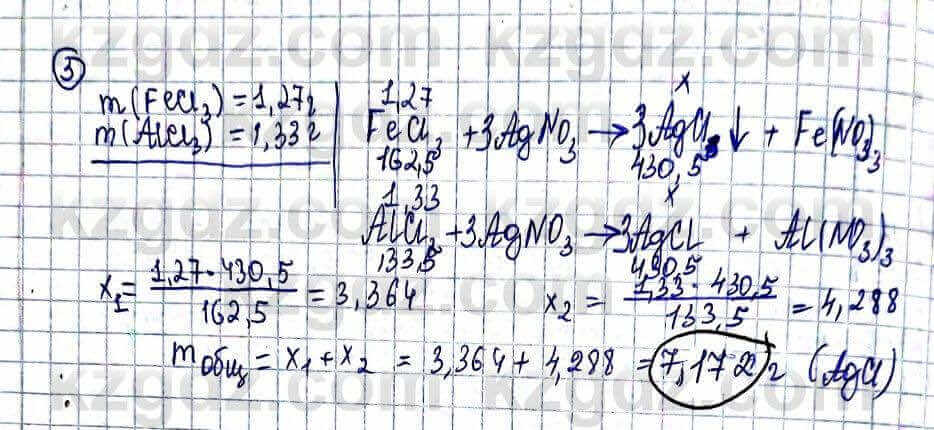 ③
m(FeCl3) = 1,27г
m(AlCl3) = 1,33г
1,27 x
FeCl3 + 3AgNO3 → 3AgCl ↓ + Fe(NO3)3
162,5 430,5
1,33 x
AlCl3 + 3AgNO3 → 3AgCl + Al(NO3)3
133,5 430,5
x1 = 1,27 · 430,5 / 162,5 = 3,364
x2 = 1,33 · 430,5 / 133,5 = 4,288
mобщ = x1 + x2 = 3,364 + 4,288 = 7,172 г (AgCl)
kzgdz.com